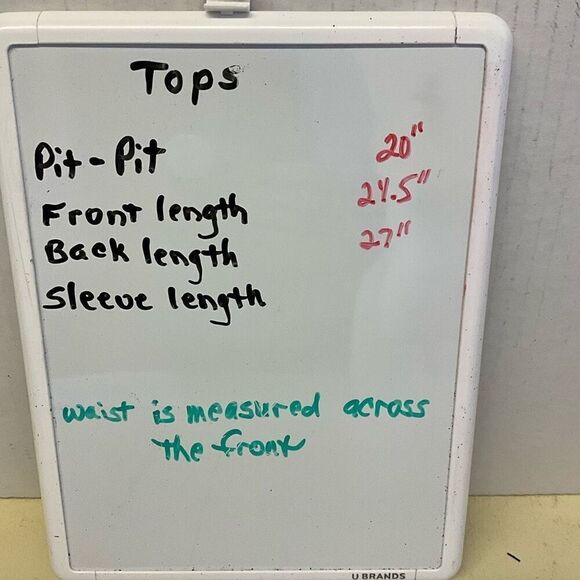 Tops
Pit - Pit 20"
Front length 24.5"
Back length 27"
Sleeve length
waist is measured across
the front
U BRANDS